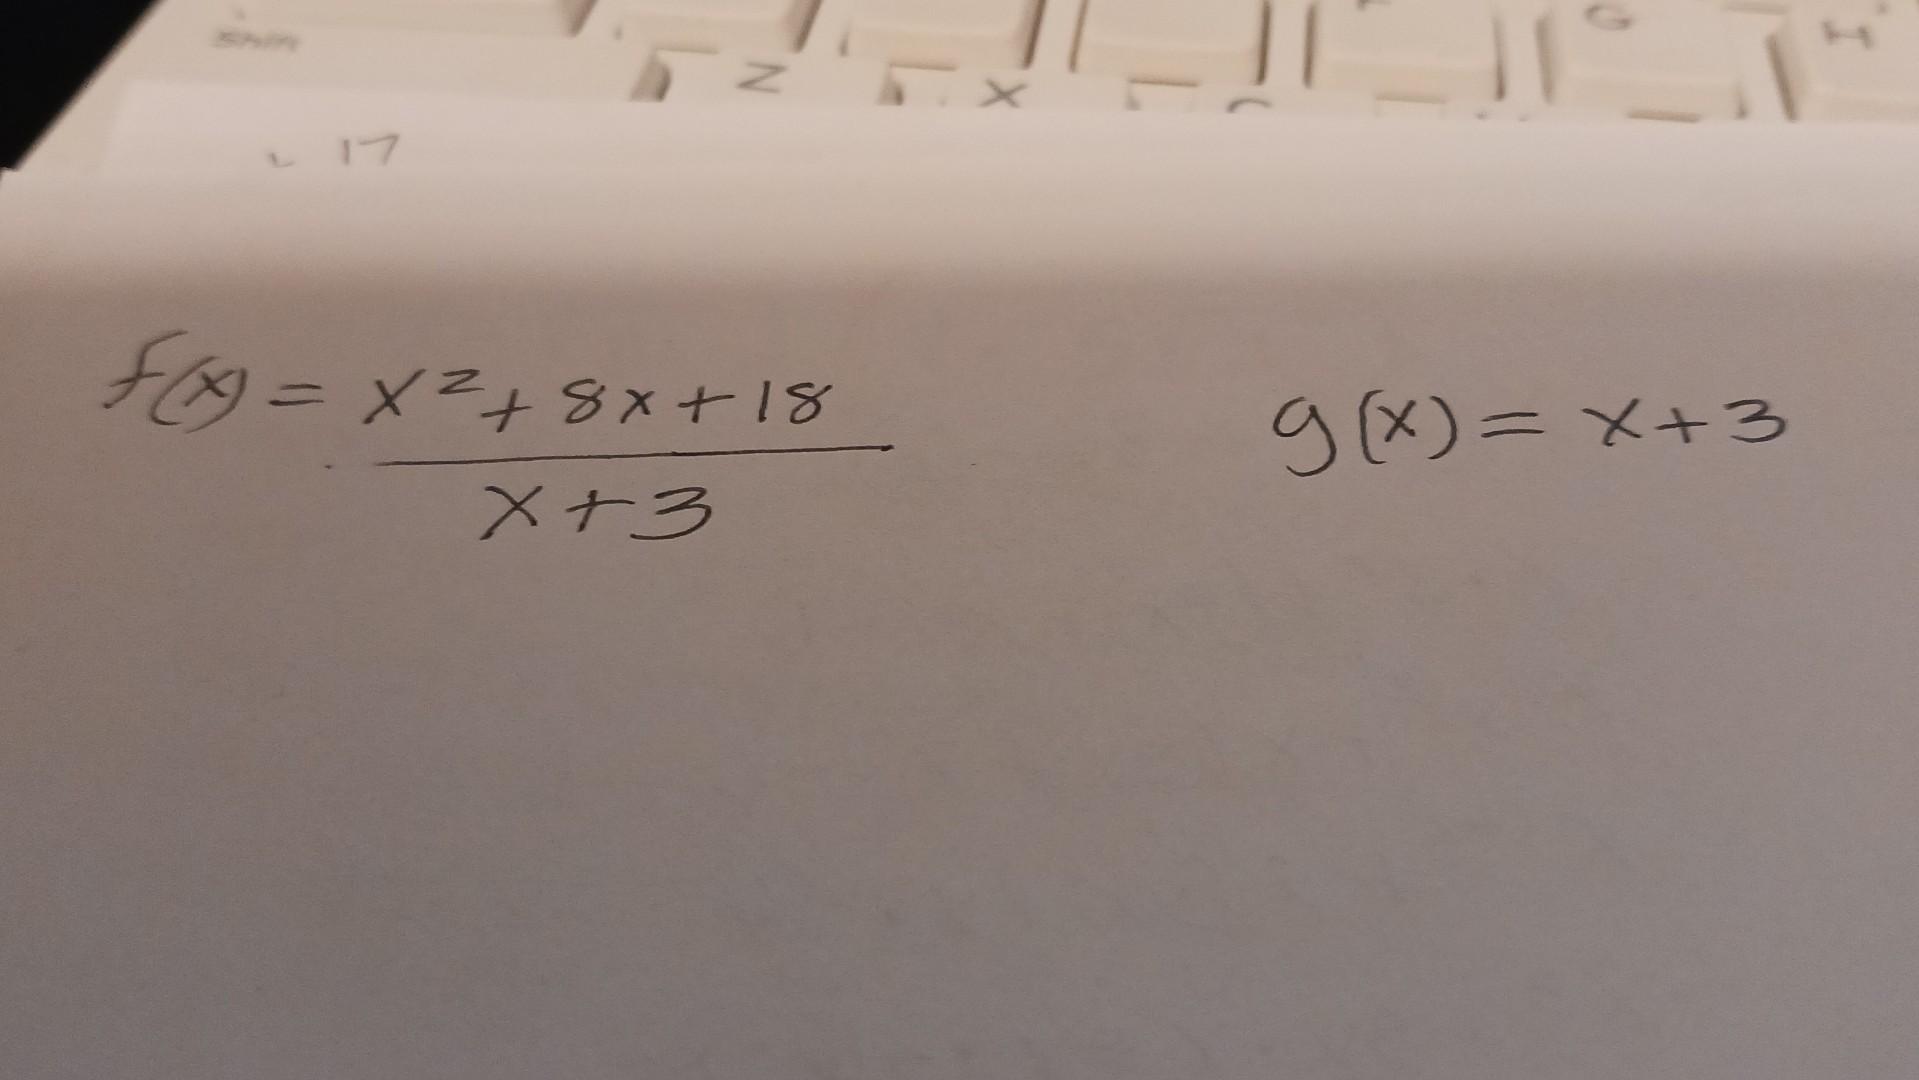 Shift
Z X G H
17
f(x) = x² + 8x + 18 g(x) = x + 3
x + 3